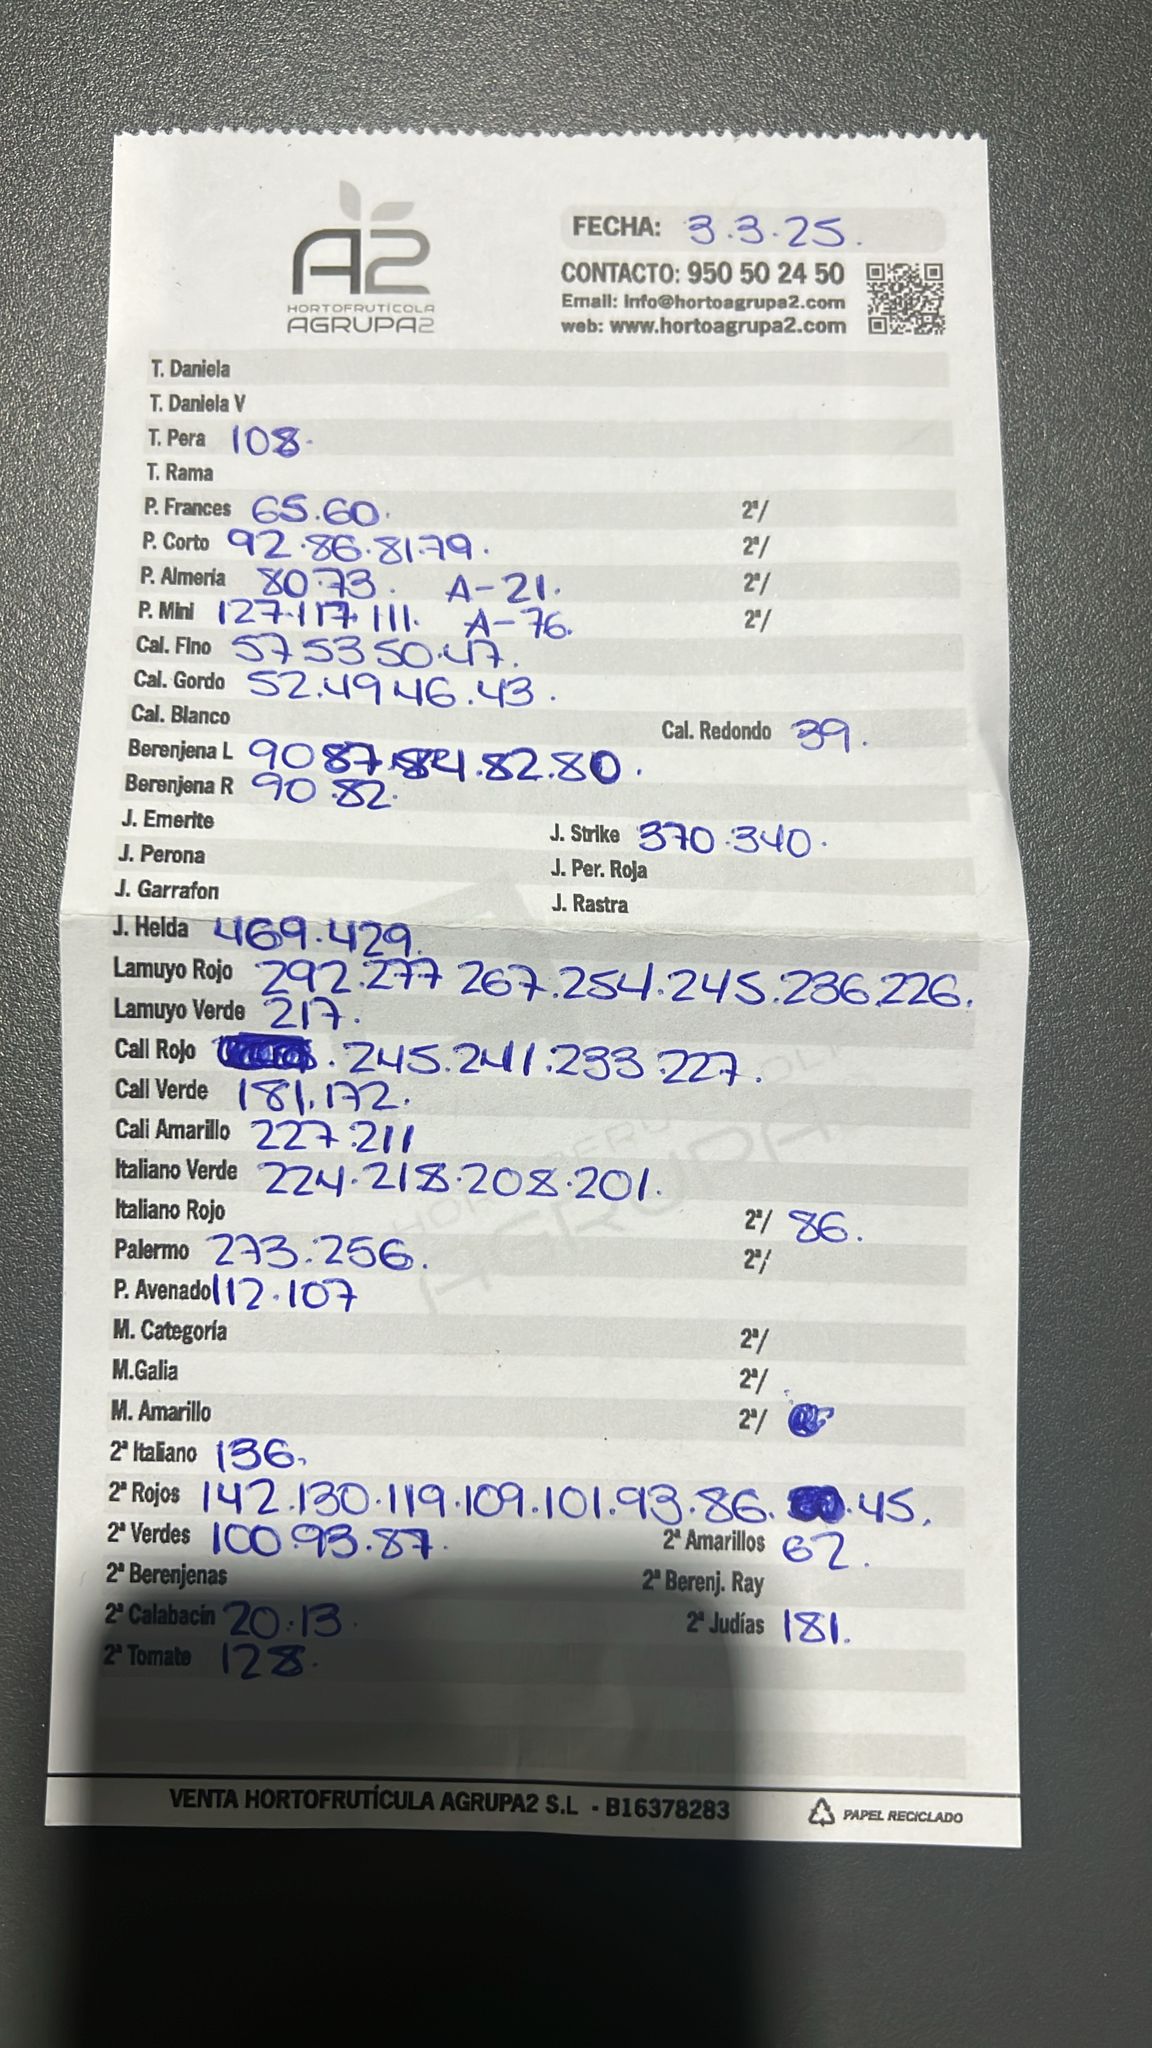 A2
HORTOFRUTÍCOLA
AGRUPA2
FECHA: 3.3.25.
CONTACTO: 950 50 24 50
Email: info@hortoagrupa2.com
web: www.hortoagrupa2.com
T. Daniela
T. Daniela V
T. Pera 108.
T. Rama
P. Frances 65.60. 2ª/
P. Corto 92.86.81.79. 2ª/
P. Almería 80.73. A-21. 2ª/
P. Mini 127.117.111. A-76. 2ª/
Cal. Fino 57 53 50.47.
Cal. Gordo 52.49 46.43.
Cal. Blanco Cal. Redondo 39.
Berenjena L 90 87.84.82.80.
Berenjena R 90.82.
J. Emerite J. Strike 370.340.
J. Perona J. Per. Roja
J. Garrafon J. Rastra
J. Helda 469.429.
Lamuyo Rojo 292.277 267.254.245.236.226.
Lamuyo Verde 217.
Cali Rojo . 245.241.233.227.
Cali Verde 181.172.
Cali Amarillo 227.211
Italiano Verde 224.218.208.201.
Italiano Rojo 2ª/ 86.
Palermo 273.256. 2ª/
P. Avenado 112.107
M. Categoría 2ª/
M.Galia 2ª/
M. Amarillo 2ª/
2ª Italiano 136.
2ª Rojos 142.130.119.109.101.93.86. .45.
2ª Verdes 100.93.87. 2ª Amarillos 62.
2ª Berenjenas 2ª Berenj. Ray
2ª Calabacín 20.13. 2ª Judías 181.
2ª Tomate 128.
VENTA HORTOFRUTÍCULA AGRUPA2 S.L - B16378283
PAPEL RECICLADO